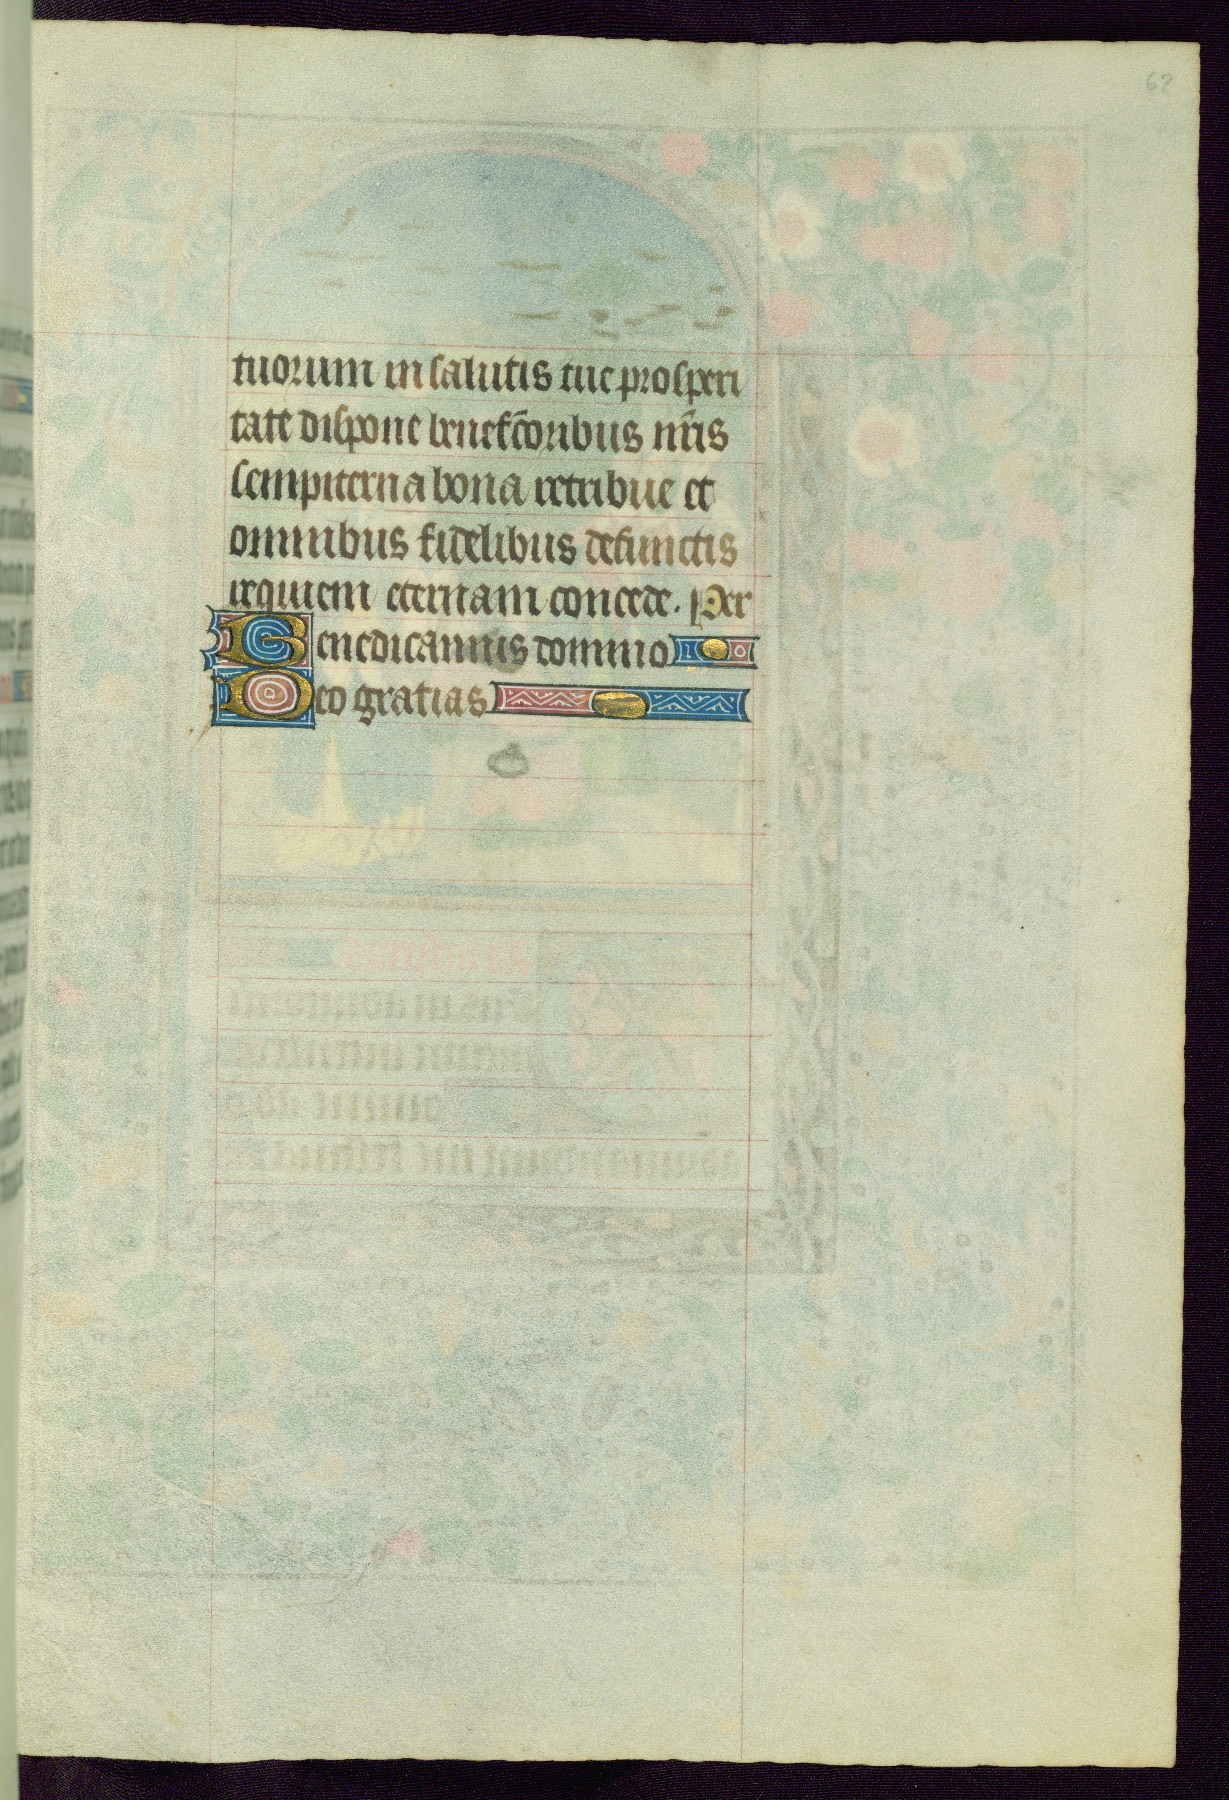 62
tuorum in salutis tue prosperi
tate dispone benefc̄oribus nr̄is
sempiterna bona retribue et
omnibus fidelibus defunctis
requiem eternam concede. Per
Benedicamus domino
Deo gratias